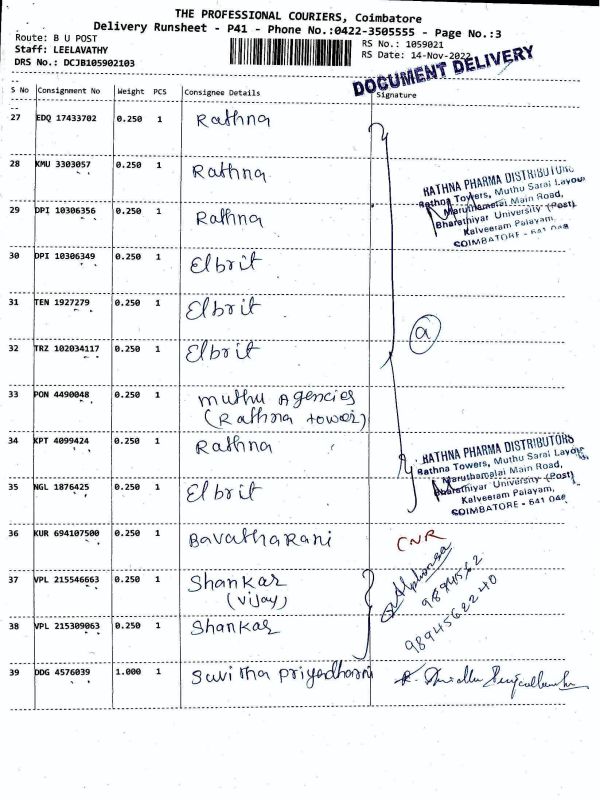 THE PROFESSIONAL COURIERS, Coimbatore
Delivery Runsheet - P41 - Phone No.:0422-3505555 - Page No.:3
Route: B U POST
RS No.: 1059021
Staff: LEELAVATHY
RS Date: 14-Nov-2022
DRS No.: DCJB105902103
DOCUMENT DELIVERY
S No Consignment No Weight PCS Consignee Details Signature
27 EDQ 17433702 0.250 1 Rathna
28 KMU 3303057 0.250 1 Rathna
RATHNA PHARMA DISTRIBUTORS
Rathna Towers, Muthu Sarai Layout
Maruthamalai Main Road,
Bharathiyar University (Post)
Kalveeram Palayam,
COIMBATORE - 641 046
29 DPI 10306356 0.250 1 Rathna
30 DPI 10306349 0.250 1 Elbrit
31 TEN 1927279 0.250 1 Elbrit
a
32 TRZ 102034117 0.250 1 Elbrit
33 PON 4490048 0.250 1 Muthu Agencies
(Rathna tower)
34 KPT 4099424 0.250 1 Rathna
RATHNA PHARMA DISTRIBUTORS
Rathna Towers, Muthu Sarai Layout
Maruthamalai Main Road,
Bharathiyar University (Post)
Kalveeram Palayam,
COIMBATORE - 641 046
35 NGL 1876425 0.250 1 Elbrit
36 KUR 694107500 0.250 1 Bavatharani CNR
37 VPL 215546663 0.250 1 Shankar
(Vijay)
9894562
9894562240
38 VPL 215309063 0.250 1 Shankar
39 DDG 4576039 1.000 1 Savitha priyadharni